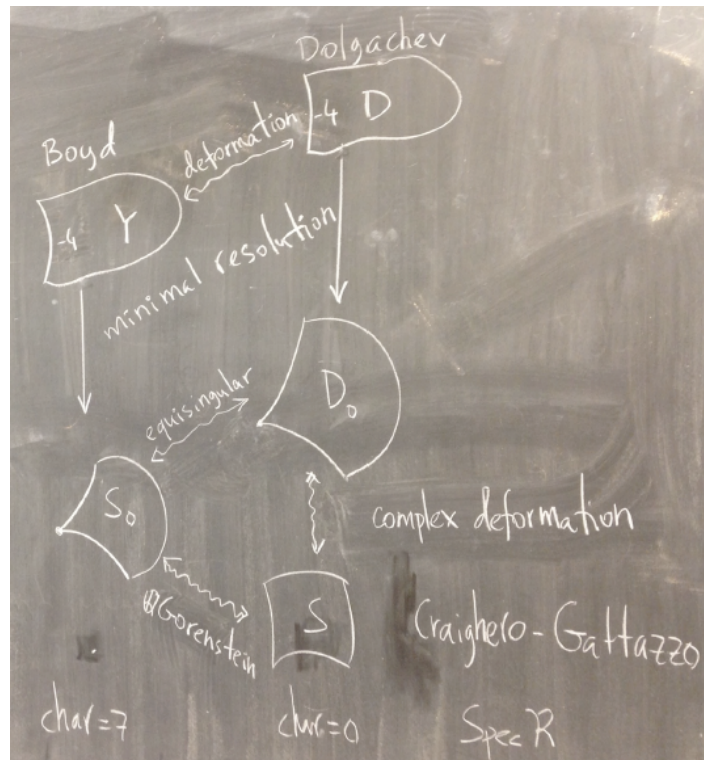 Dolgachev
-4 D
deformation
Boyd
-4 Y
minimal resolution
D₀
equisingular
S₀
complex deformation
S
Gorenstein
Craighero-Gattazzo
char=7
char=0
Spec R